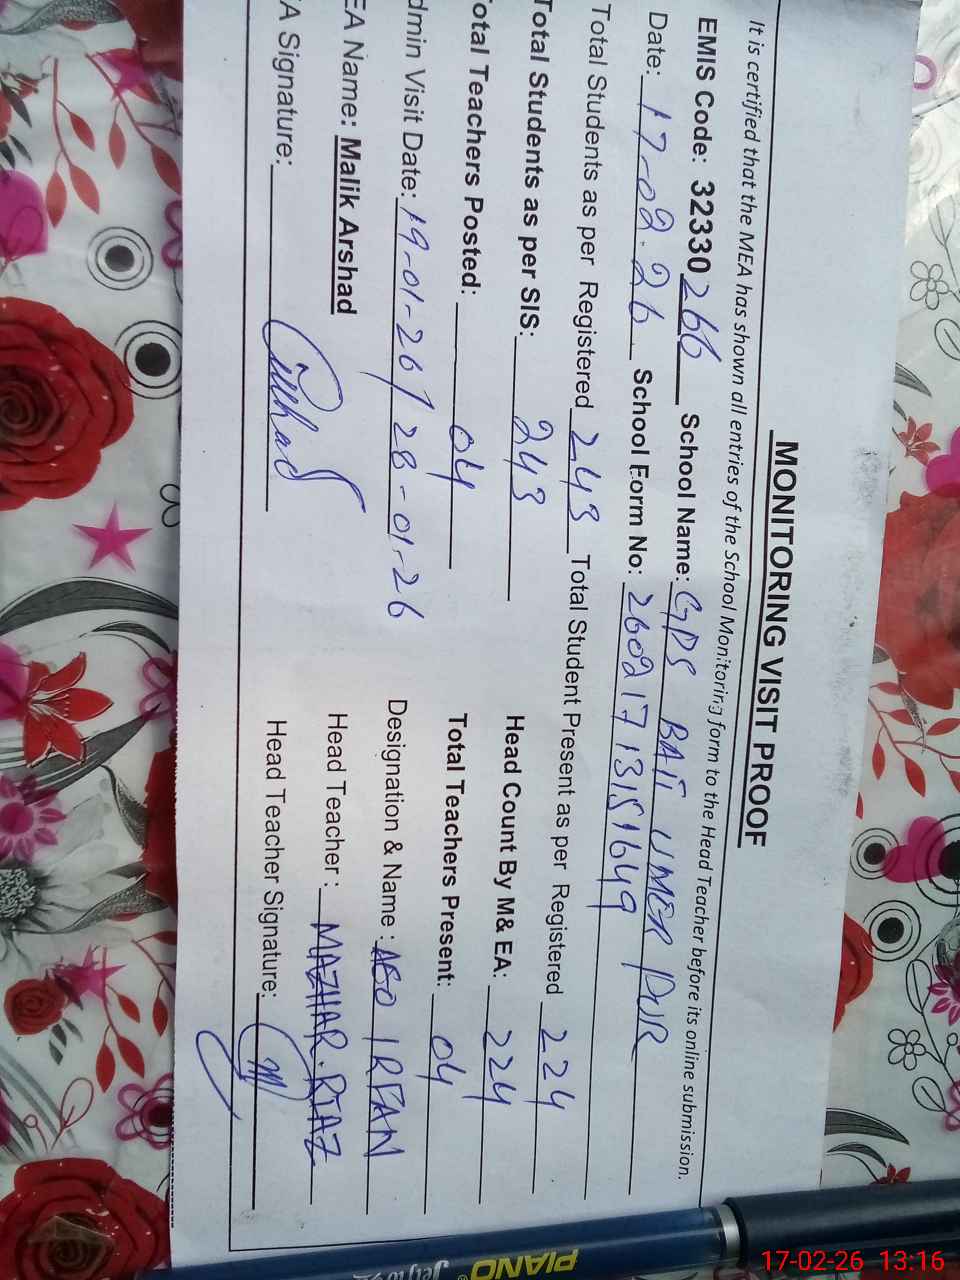 MONITORING VISIT PROOF
It is certified that the MEA has shown all entries of the School Monitoring form to the Head Teacher before its online submission.
EMIS Code: 32330266 School Name: GPS BAIT UMER PUR
Date: 17-02-26 School Form No: 260217131511649
Total Students as per Registered 243 Total Student Present as per Registered 224
Total Students as per SIS: 243 Head Count By M& EA: 224
otal Teachers Posted: 04 Total Teachers Present: 04
dmin Visit Date: 19-01-26 / 28-01-26 Designation & Name: AEO IRFAN
EA Name: Malik Arshad Head Teacher: MAZHAR RIAZ
A Signature: Arshad Head Teacher Signature:
PIANO
17-02-26 13:16